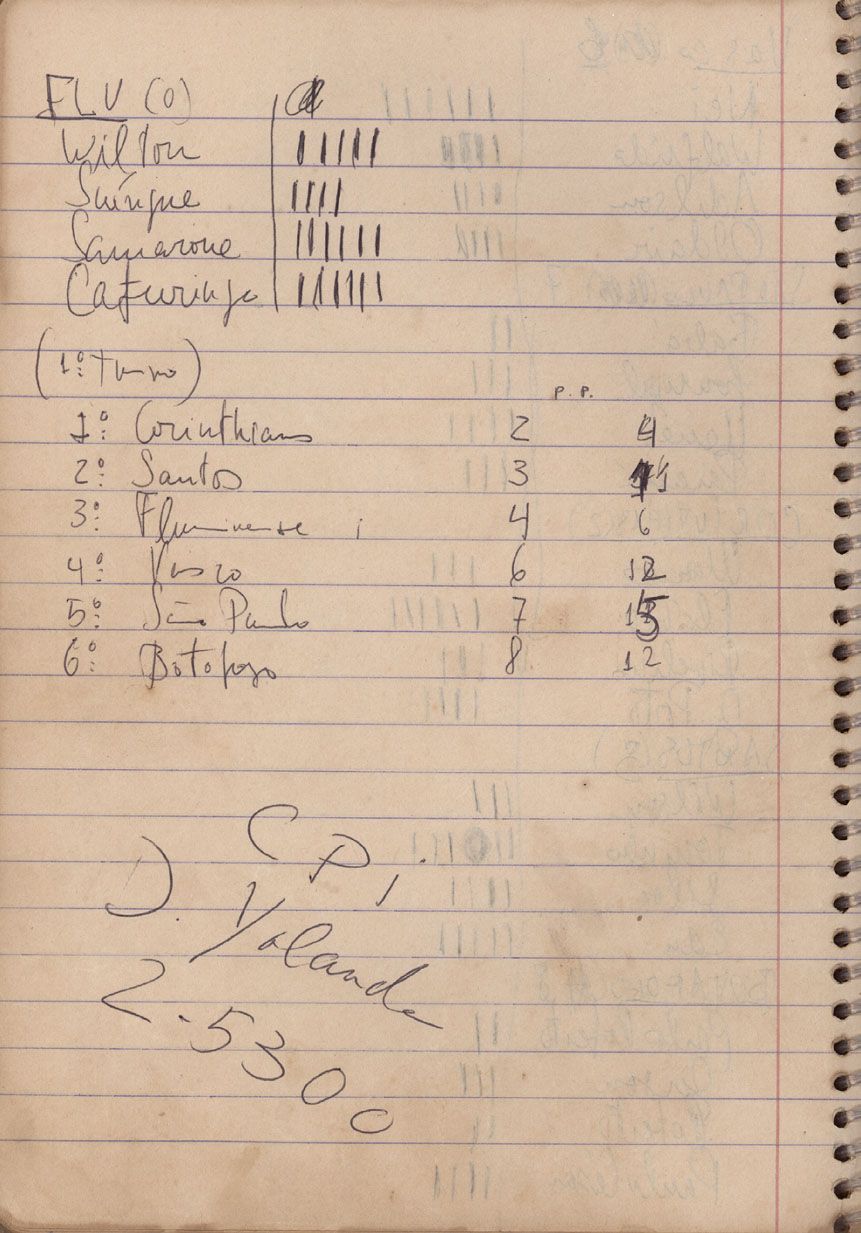 FLU (0)
Wilton
Suíngue
Samarone
Cafuringa
(1º turno)
P. P.
1º Corinthians 2 4
2º Santos 3 11
3º Fluminense 4 6
4º Vasco 6 12
5º São Paulo 7 15
6º Botafogo 8 12
C P I.
D. Yolanda
2-5300